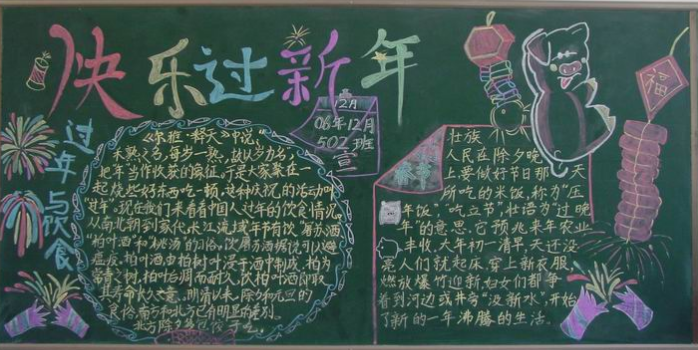 快乐过新年
12月
06年12月
502班
宣
过年与饮食
《尔雅·释天》中说,
禾熟之名,每岁一熟,故以岁为名,
把年当作收获的象征,于是大家聚在一
起烧些好东西吃一顿,这种庆祝的活动叫
"过年",现在我们来看看中国人过年的饮食情况。
从南北朝到宋代,长江流域年节有饮"屠苏酒"
"柏叶酒"和"桃汤"的习俗,饮屠苏酒据说可以避
瘟疫,柏叶酒由柏树叶浸于酒中制成,柏为
常青之树,柏叶后凋而耐久,饮柏叶酒即取
其寿命长久之意。明清以来,除夕和元旦的
食俗,南方和北方已有明显的差别。
北方除夕
福
春节
壮族
人民在除夕晚
上要做好节日那一天
所吃的米饭,称为"压
年饭","吃立节",壮语为"过晚
年"的意思,它预兆来年农业
丰收,大年初一清早,天还没
亮人们就起床,穿上新衣服,
燃放爆竹迎新,妇女们都争
着到河边或井旁"汲新水",开始
了新的一年沸腾的生活。